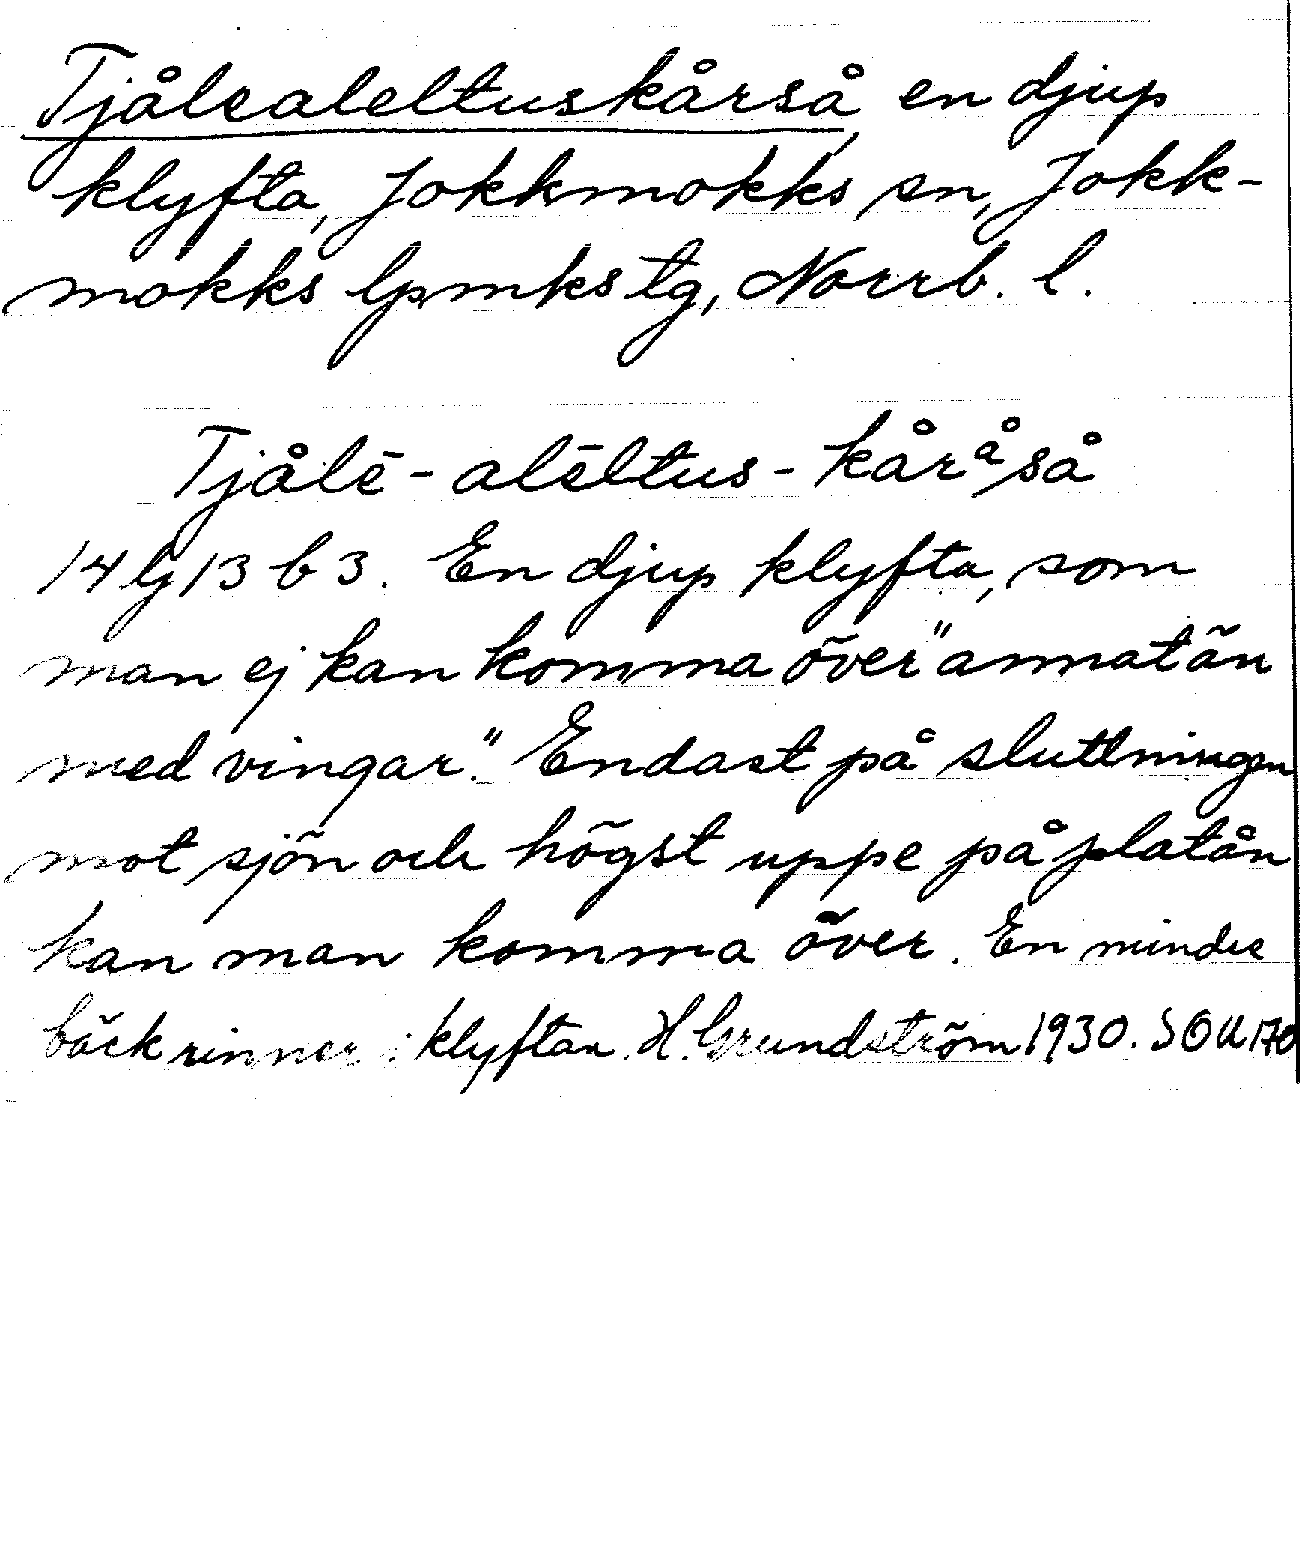 Tjålealeltuskårså, en djup
klyfta, Jokkmokks sn, Jokk-
mokks lpmks tg, Norrb. l.
Tjålē-alēltus-kåråså
14 lj 13 b 3. En djup klyfta, som
man ej kan komma över "annat än
med vingar". Endast på sluttningen
mot sjön och högst uppe på platån
kan man komma över. En mindre
bäck rinner i klyftan. H. Grundström 1930. SOU 170